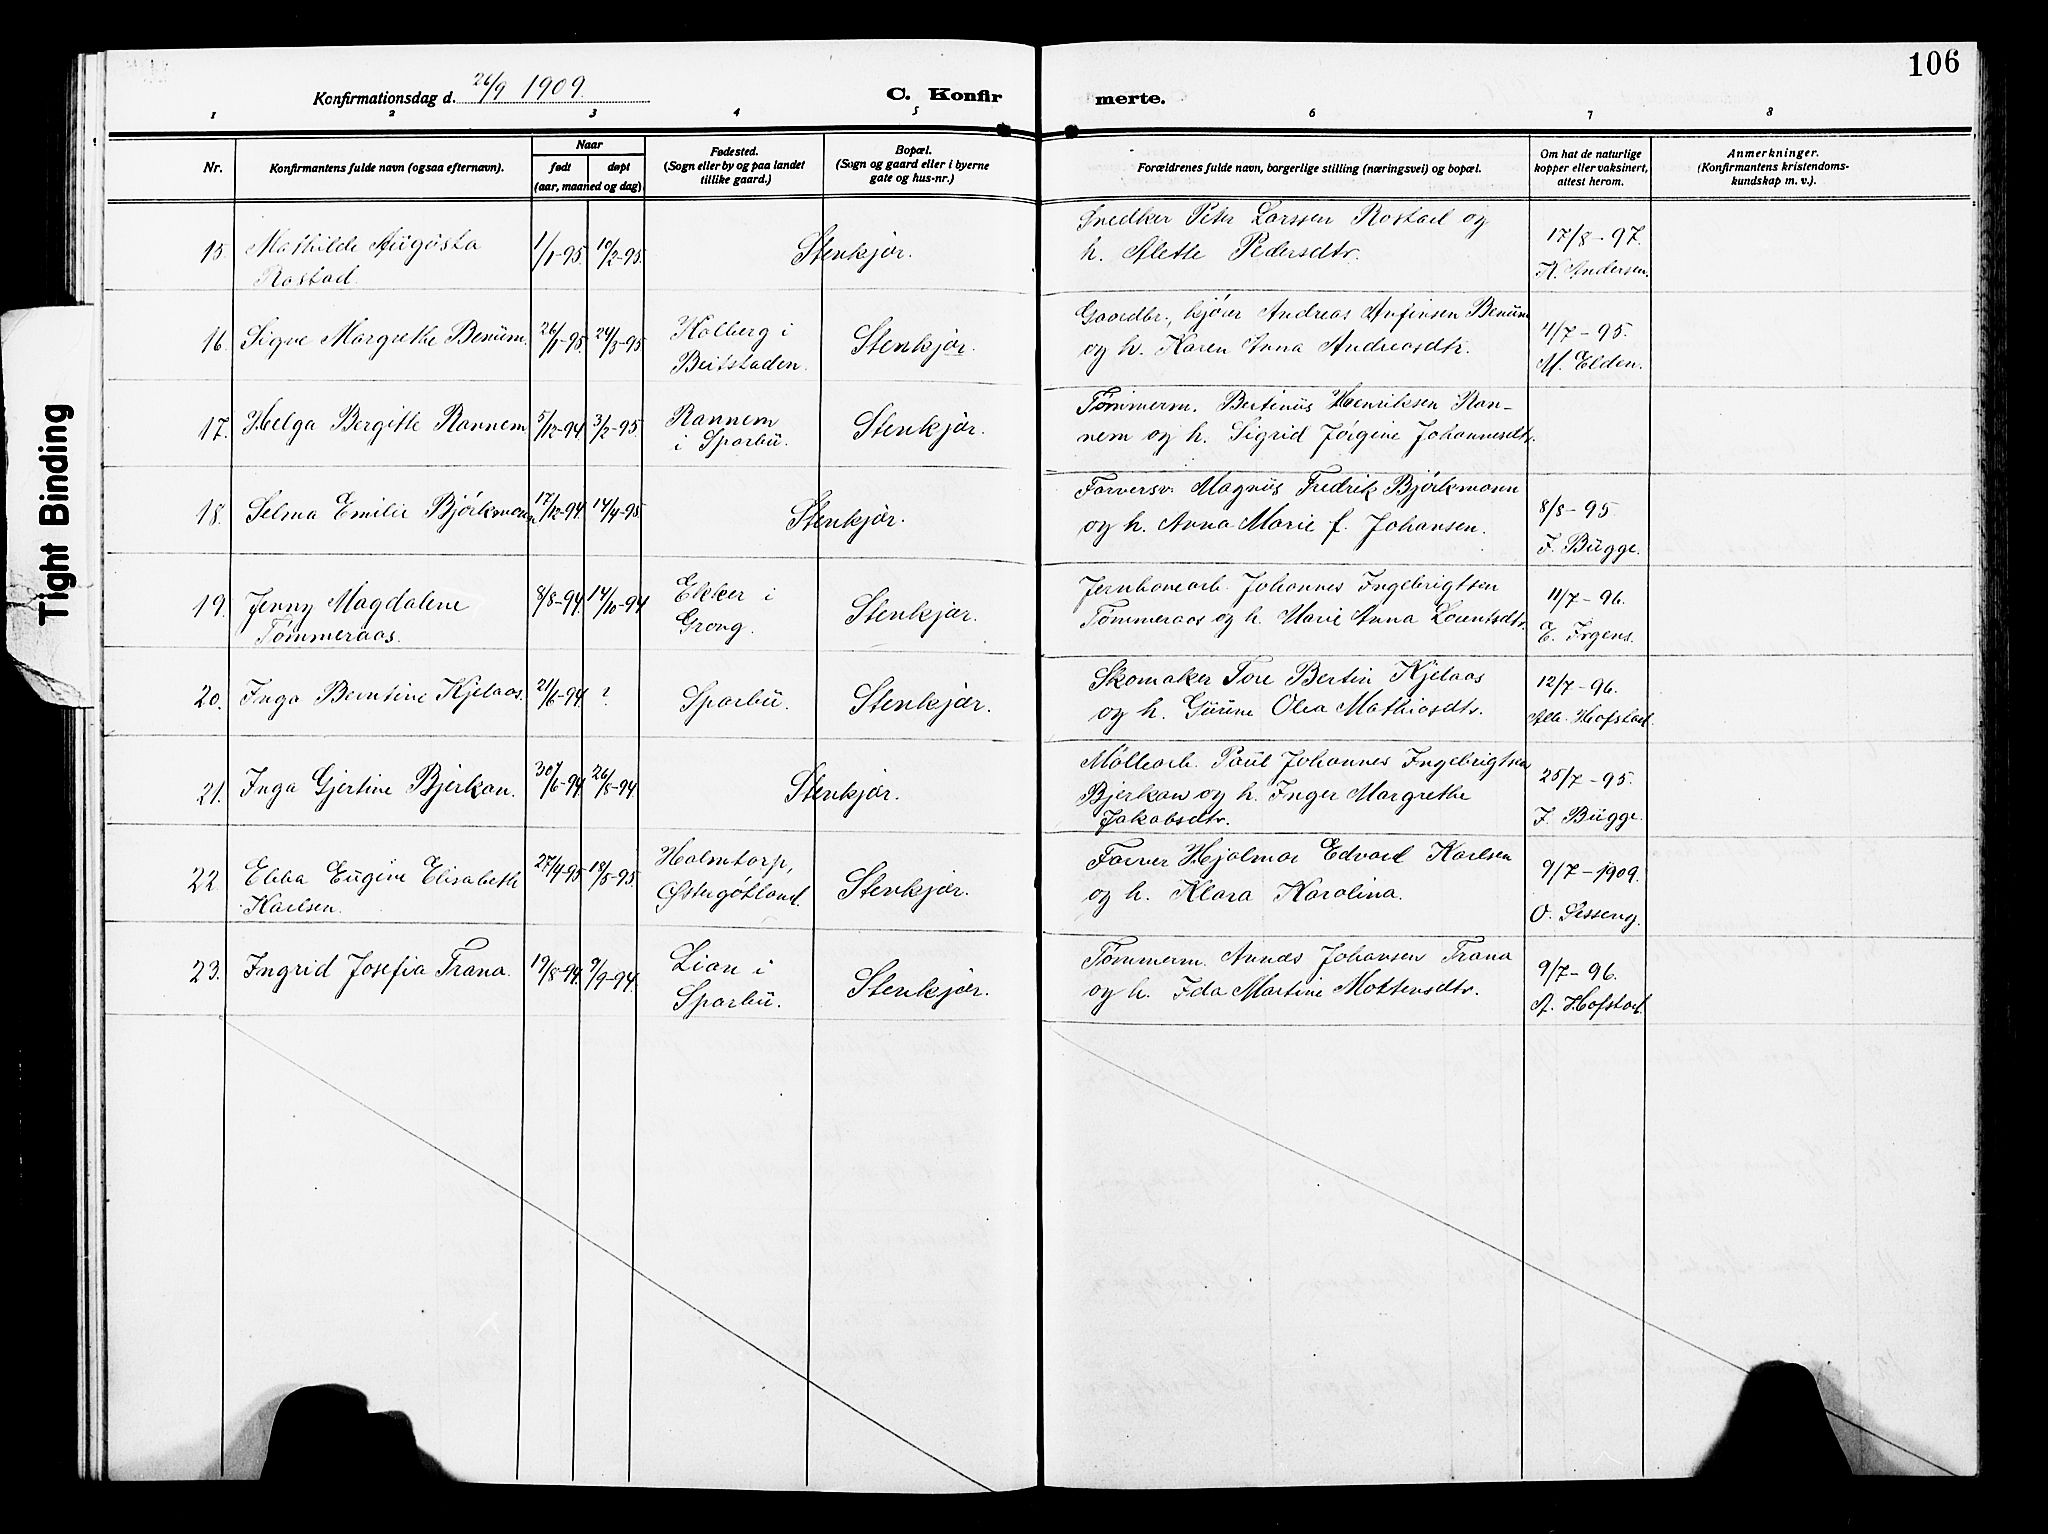 106
Konfirmationsdag d. 26/9 1909.
C. Konfir merte.
1 2 3 4 5 6 7 8
Nr.
Konfirmantens fulde navn (ogsaa efternavn).
Naar
født døpt
(aar, maaned og dag)
Fødested.
(Sogn eller by og paa landet
tillike gaard.)
Bopæl.
(Sogn og gaard eller i byerne
gate og hus-nr.)
Forældrenes fulde navn, borgerlige stilling (næringsvei) og bopæl.
Om hat de naturlige
kopper eller vaksinert,
attest herom.
Anmerkninger.
(Konfirmantens kristendoms-
kundskap m. v.).
15. Mathilde Augusta 1/1-95. 10/2-95. Stenkjær.
Rostad.
Snedker Peter Larssen Rostad og
h. Alette Pedersdtr.
17/8-97.
K. Andersen.
16. Signe Margrethe Benum. 26/1-95. 24/3-95 Holberg i
Beitstaden. Stenkjær.
Gaardbr., kjører Andreas Anfinsen Benum
og h. Karen Anna Andreasdtr.
4/7-95.
M. Elden.
17. Helga Bergitte Rannem 5/12-94 3/2-95. Rannem
i Sparbu. Stenkjær.
Tømmerm. Bertinus Henriksen Ran-
nem og h. Sigrid Jørgine Johannesdtr.
18. Selma Emilie Bjørkmann 17/12-94. 14/4-95 Stenkjær.
Farversv. Magnus Fredrik Bjørkmann
og h. Anna Marie f. Johansen.
8/8-95.
F. Bugge.
19. Jenny Magdalene 8/8-94. 14/10-94 Ekker i
Tømmeraas. Grong. Stenkjær.
Jernbanearb. Johannes Ingebrigtsen
Tømmeraas og h. Marie Anna Lorentsdtr.
11/7-96.
E. Irgens.
20. Inga Berntine Kjelaas. 21/6-94. ? Sparbu. Stenkjær.
Skomaker Tore Bertin Kjelaas
og h. Gurine Olea Mathiasdtr.
12/7-96.
Alb. Hofstad.
21. Inga Gjertine Bjerkan. 26/5-94. Stenkjær.
Møllearb. Paul Johannes Ingebrigtsen
Bjerkan og h. Inger Margrethe
Jakobsdtr.
25/7-95.
F. Bugge.
22. Ebba Eugine Elisabeth 27/4-95 18/5-95. Holmtorp,
Karlsen. Østergøtland. Stenkjær.
Farver Hjalmar Edvard Karlsen
og h. Klara Karolina.
9/7-1909.
O. Sesseng.
23. Ingrid Josefia Trana. 19/8-94. 9/9-94. Lian i
Sparbu. Stenkjær.
Tømmerm. Annæs Johansen Trana
og h. Ida Martine Mortensdtr.
9/7-96.
A. Hofstad.
Tight Binding